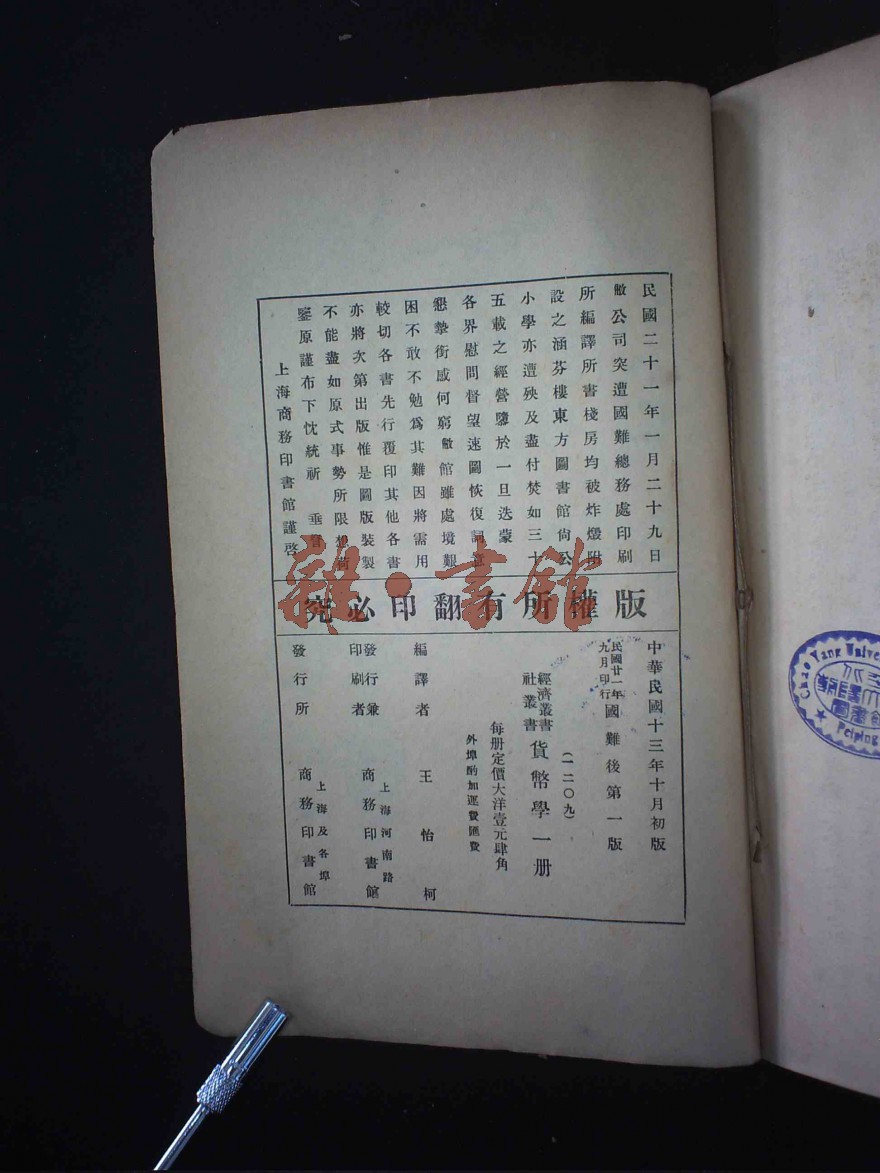 民國二十一年一月二十九日
敝公司突遭國難總務處印刷
所編譯所書棧房均被炸燬附
設之涵芬樓東方圖書館尙公
小學亦遭殃及盡付焚如三十
五載之經營隳於一旦迭蒙
各界慰問督望速圖恢復詞意
懇摯銜感何窮敝館雖處境艱
困不敢不勉爲其難因將需用
較切各書先行覆印其他各書
亦將次第出版惟是圖版裝製
不能盡如原式事勢所限想荷
鑒原謹布下忱統祈 垂詧
上海商務印書館謹啓
版權所有翻印必究
中華民國十三年十月初版
民國廿一年九月印行 國難後第一版
(一二〇九)
經濟叢書社叢書 貨幣學一册
每册定價大洋壹元肆角
外埠酌加運費匯費
編譯者 王怡柯
發行兼印刷者 上海河南路 商務印書館
發行所 上海及各埠 商務印書館
雜·書館
Chao Yang Univer
Peiping